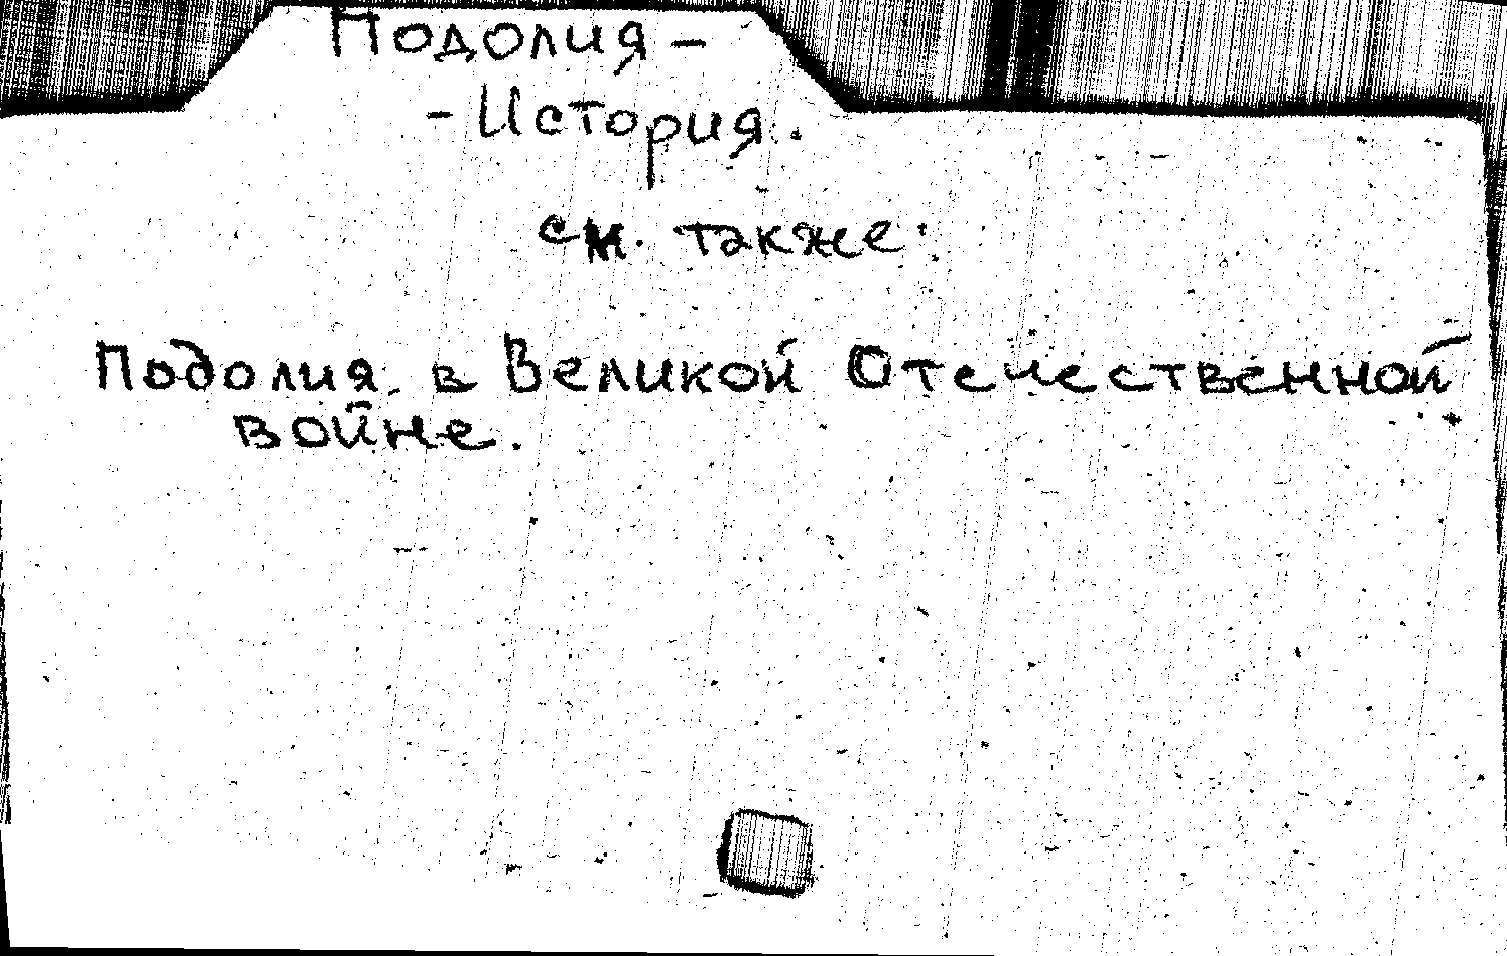 Подолия –
- История.
см. также:
Подолия в Великой Отечественной
войне.